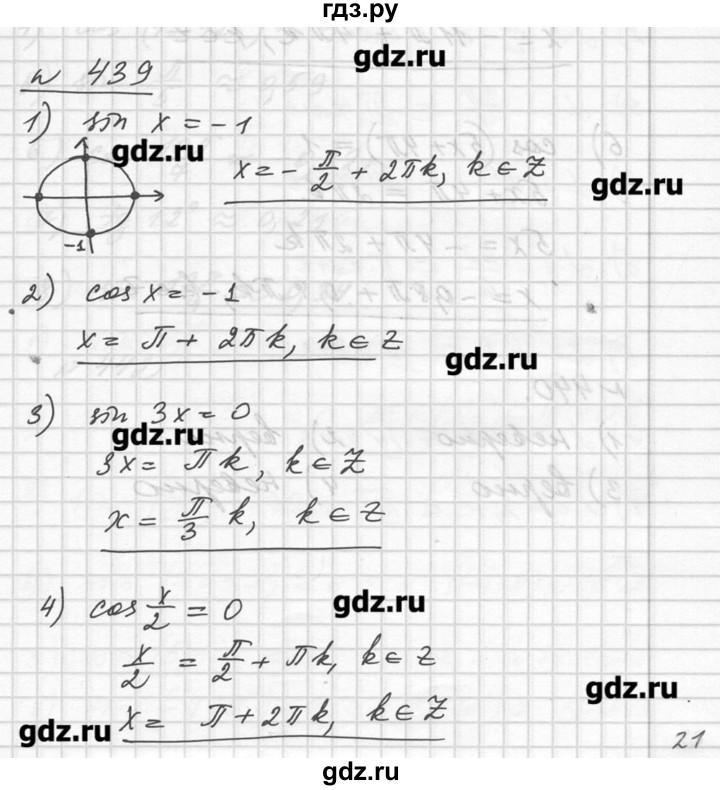 гдз.ру
gdz.ru
№ 439
1) sin x = -1
gdz.ru
x = - π/2 + 2πk, k ∈ Z
gdz.ru
-1
2) cos x = -1
x = π + 2πk, k ∈ Z
gdz.ru
3) sin 3x = 0
gdz.ru
3x = πk, k ∈ Z
x = π/3 k, k ∈ Z
4) cos x/2 = 0
gdz.ru
x/2 = π/2 + πk, k ∈ Z
gdz.ru
x = π + 2πk, k ∈ Z
gdz.ru
21
gdz.ru